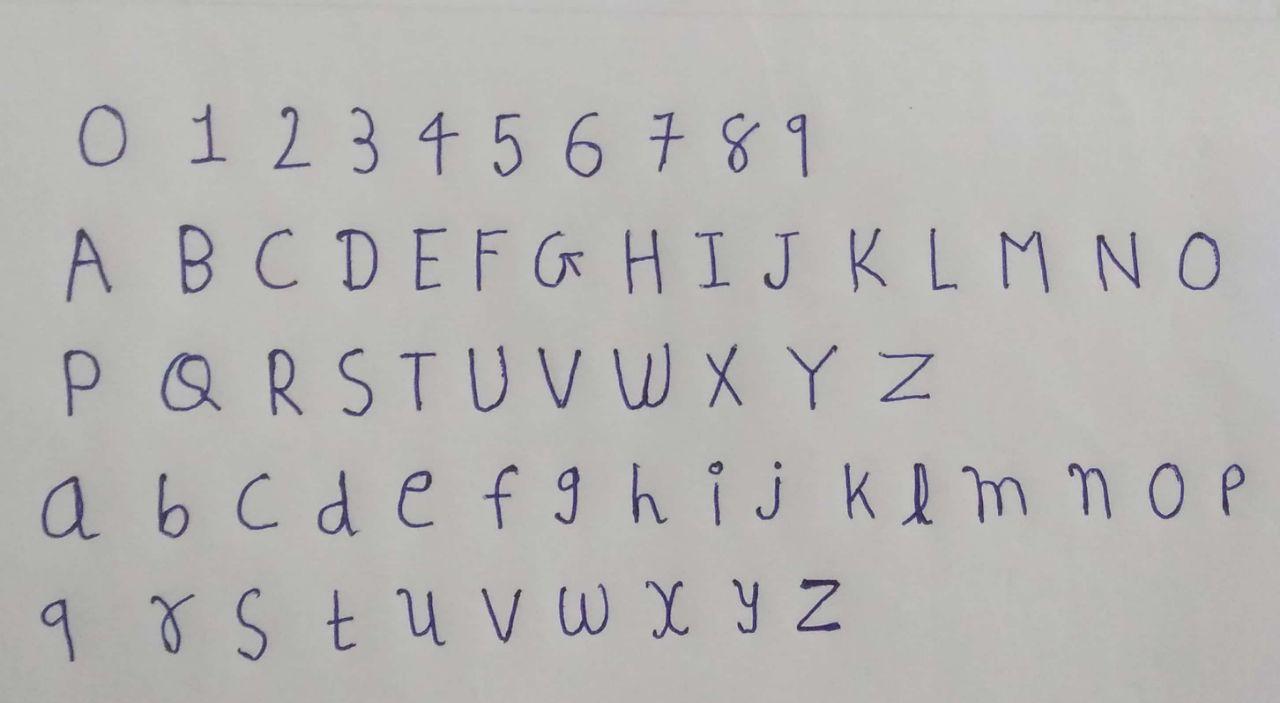 0 1 2 3 4 5 6 7 8 9
A B C D E F G H I J K L M N O
P Q R S T U V W X Y Z
a b c d e f g h i j k l m n o p
q r s t u v w x y z